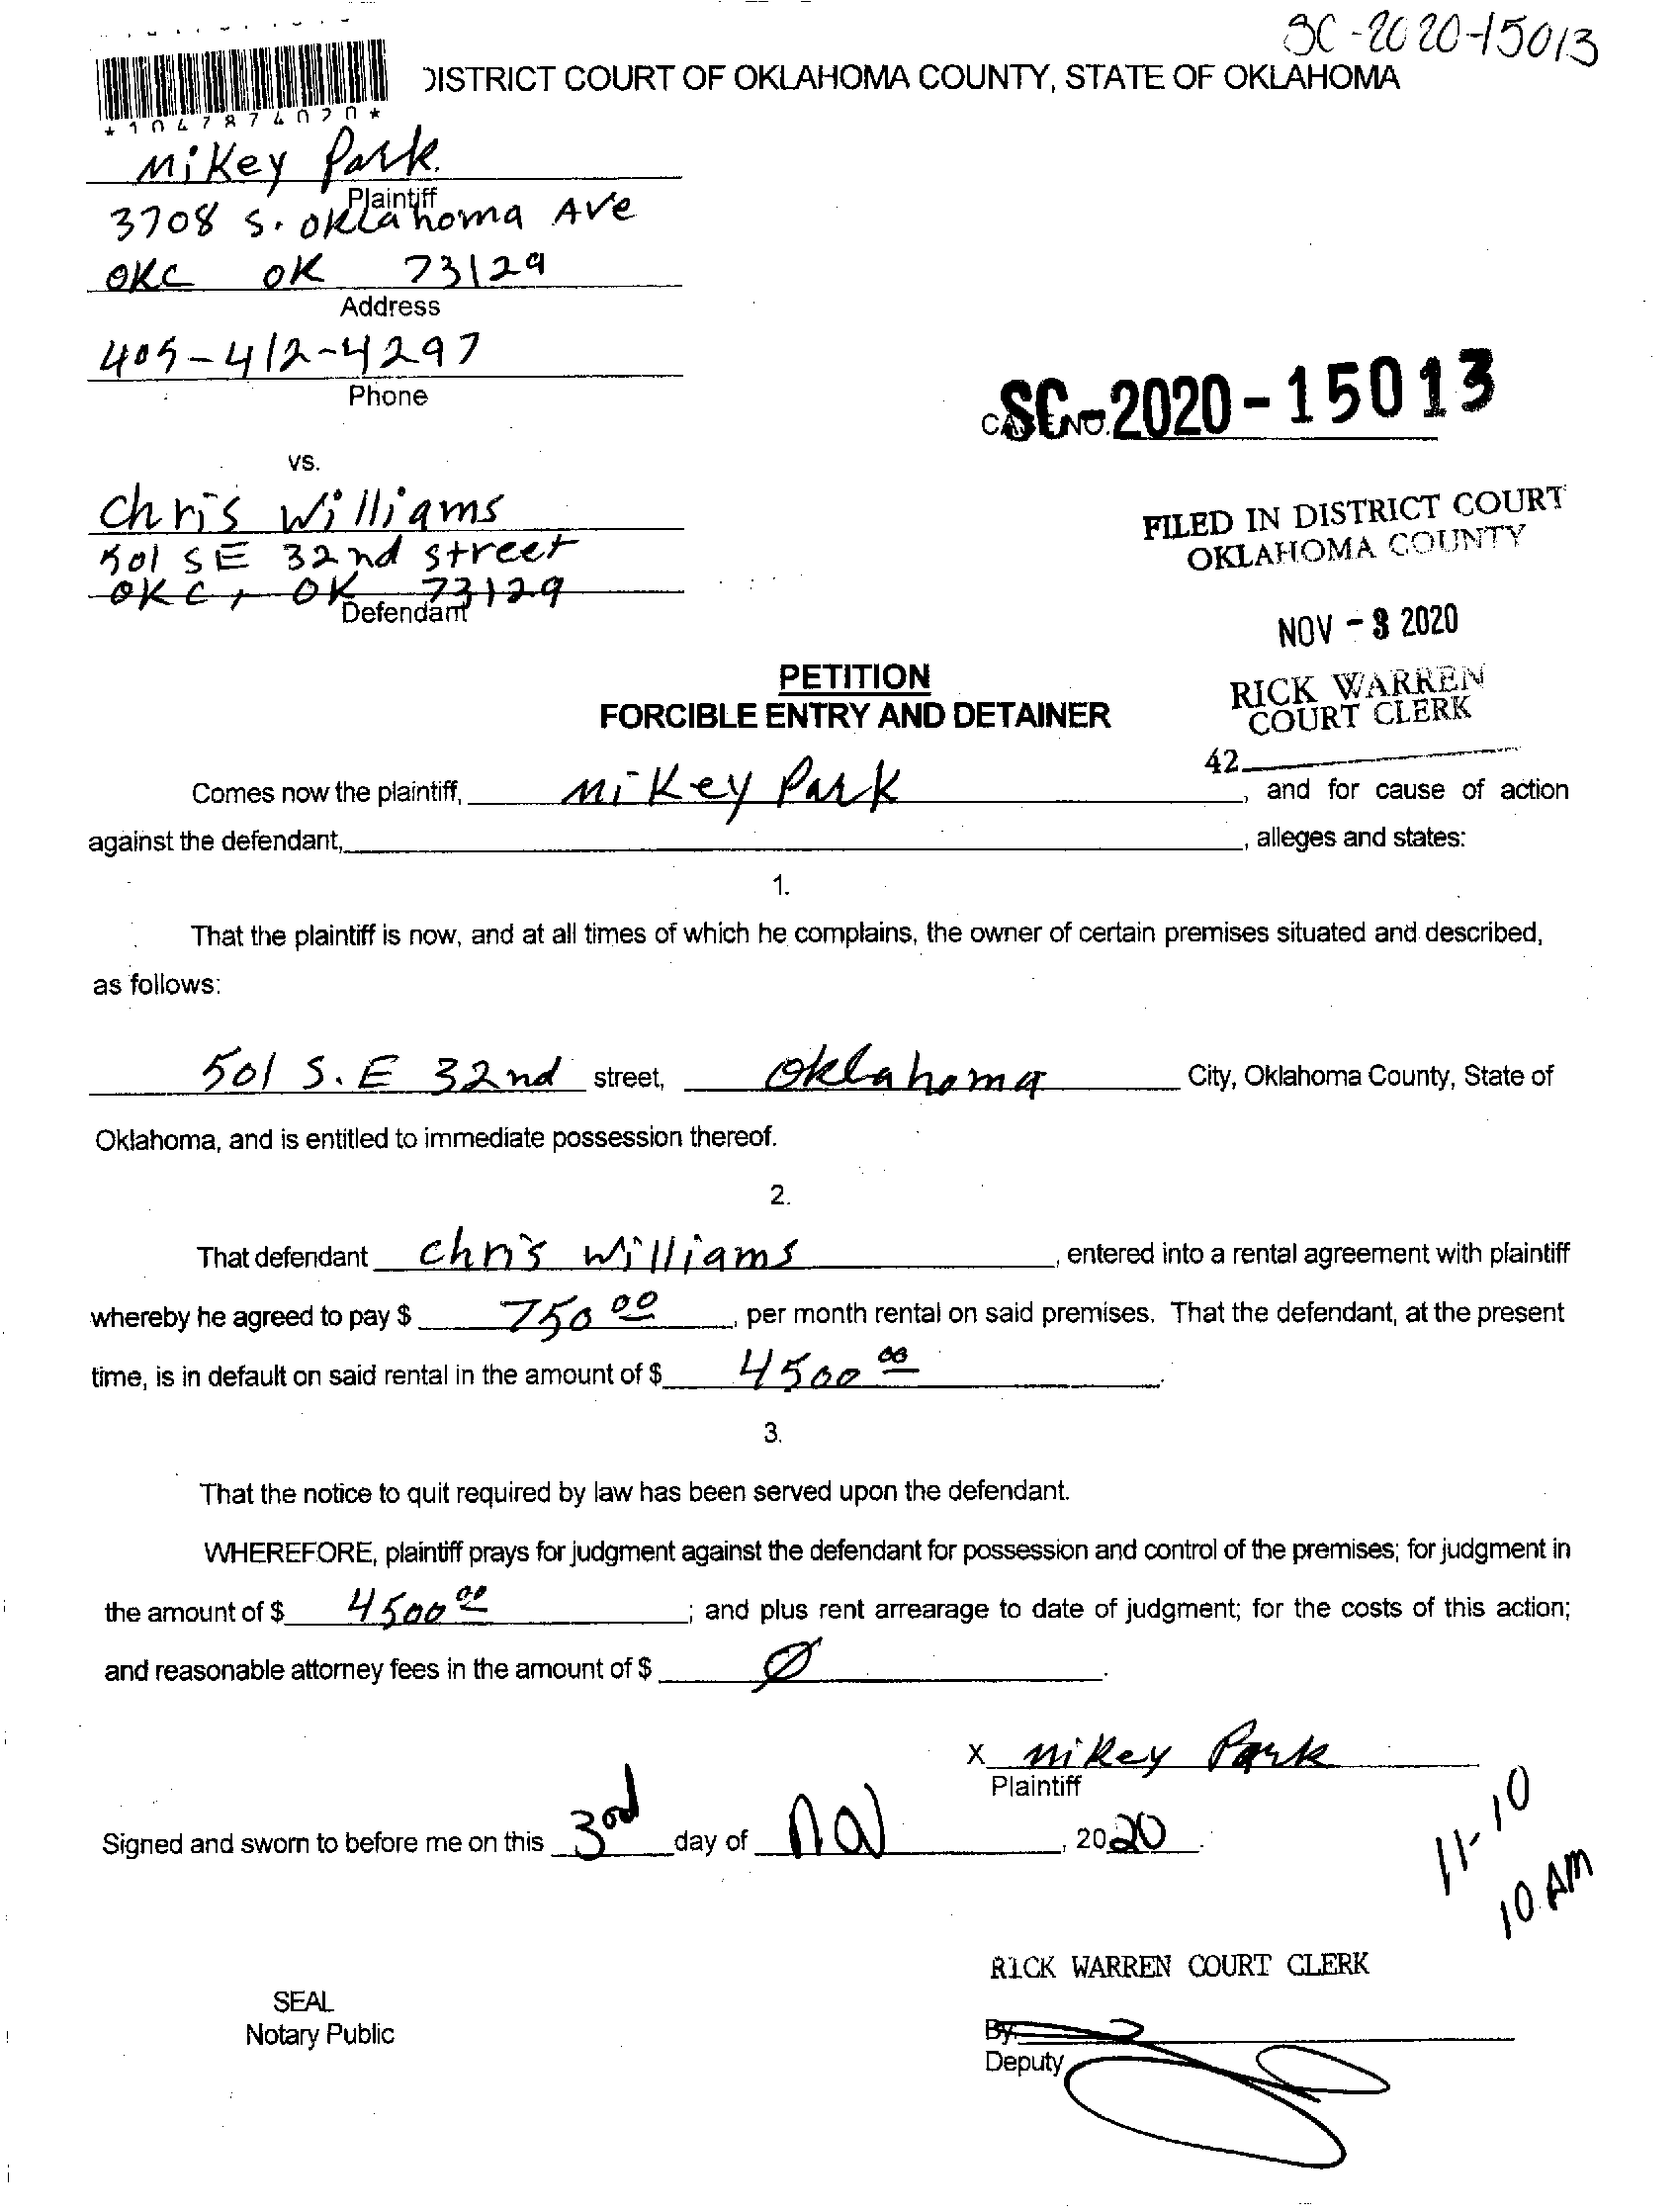 SC-2020-15013
DISTRICT COURT OF OKLAHOMA COUNTY, STATE OF OKLAHOMA
*1047874020*
Mikey Park.
Plaintiff
3708 S. Oklahoma Ave
OKC OK 73129
Address
405-412-4297
Phone
CASE NO. SC-2020-15013
vs.
Chris Williams
501 SE 32nd street
OKC, OK 73129
Defendant
FILED IN DISTRICT COURT
OKLAHOMA COUNTY
NOV - 3 2020
RICK WARREN
COURT CLERK
42
PETITION
FORCIBLE ENTRY AND DETAINER
Comes now the plaintiff, Mikey Park, and for cause of action
against the defendant, , alleges and states:
1.
That the plaintiff is now, and at all times of which he complains, the owner of certain premises situated and described,
as follows:
501 S.E 32nd street, Oklahoma City, Oklahoma County, State of
Oklahoma, and is entitled to immediate possession thereof.
2.
That defendant Chris Williams, entered into a rental agreement with plaintiff
whereby he agreed to pay $ 750 00, per month rental on said premises. That the defendant, at the present
time, is in default on said rental in the amount of $ 4500 00.
3.
That the notice to quit required by law has been served upon the defendant.
WHEREFORE, plaintiff prays for judgment against the defendant for possession and control of the premises; for judgment in
the amount of $ 4500 00; and plus rent arrearage to date of judgment; for the costs of this action;
and reasonable attorney fees in the amount of $ Ø.
X Mikey Park
Plaintiff
Signed and sworn to before me on this 3rd day of Nov, 2020.
11-10
10 AM
RICK WARREN COURT CLERK
SEAL
Notary Public
By:
Deputy